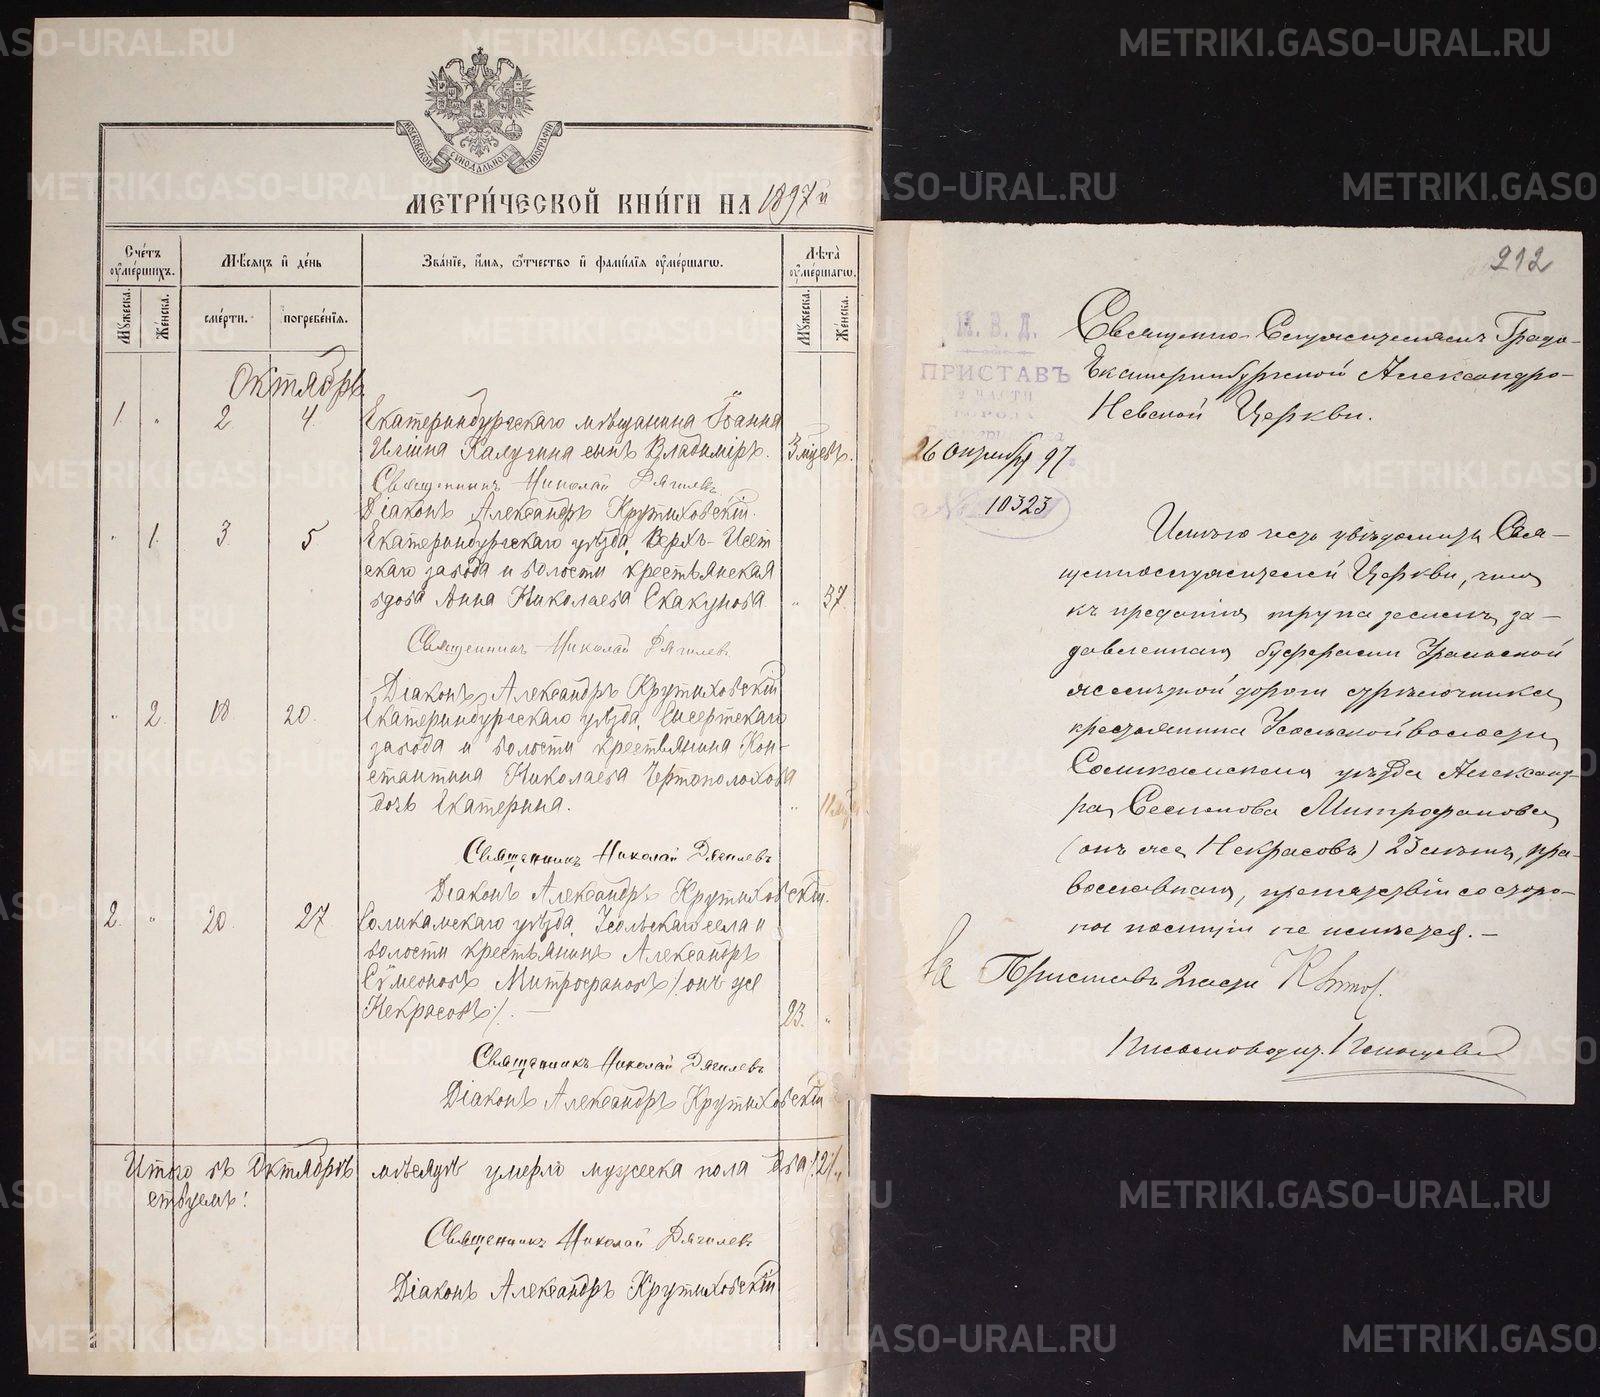 МОСКОВСКОЙ СѴНОДАЛЬНОЙ ТИПОГРАФІИ
МЕТРИ́ЧЕСКОЙ КНИ́ГИ НА 1897 й
Сче́тъ оу҆ме́ршихъ.
Мѣ́сяцъ и҆ де́нь
Зва́ніе, и҆́мя, ѻ҆́тчество и҆ фами́лія оу҆ме́ршагѡ.
Лѣ́та оу҆ме́ршагѡ.
Му́жеска.
Же́нска.
сме́рти.
погребе́нія.
Му́жеска.
Же́нска.
Октябрь
1. " 2 4. Екатеринбургскаго мѣщанина Іоанна
Калугина сынъ Владиміръ. 3 мцвъ.
Священникъ Николай Дягилевъ
Діаконъ Александръ Крутиховскій.
" 1. 3 5 Екатеринбургскаго уѣзда, Верхъ-Исет
скаго завода и волости крестьянская
вдова Анна Николаева Скакунова " 37.
Священникъ Николай Дягилевъ
Діаконъ Александръ Крутиховскій
" 2. 18 20. Екатеринбургскаго уѣзда, Сысертскаго
завода и волости крестьянина Кон-
стантина Николаева Чертополохова
дочь Екатерина. "
Священникъ Николай Дягилевъ
Діаконъ Александръ Крутиховскій.
2. " 20. 27 Соликамскаго уѣзда, Усольскаго села и
волости крестьянинъ Александръ
Сѵмеоновъ Митрофановъ /:онъ же
Некрасовъ:/. — 23. "
Священникъ Николай Дягилевъ
Діаконъ Александръ Крутиховскій
Итого въ Октябрѣ мѣсяцѣ умерло мужеска пола два /:2:/,
Священникъ Николай Дягилевъ
Діаконъ Александръ Крутиховскій
212
М. В. Д.
ПРИСТАВЪ
2 ЧАСТИ
ГОРОДА
26 Октября 97
№ 10323
Священно-Служителямъ Градо-
Екатеринбургской Александро-
Невской Церкви.
Имѣю честь увѣдомить Свя-
щеннослужителей Церкви, что
къ преданію трупа землѣ, за-
давленнаго буферами Уральской
желѣзной дороги стрѣлочника,
крестьянина Усольской волости,
Соликамскаго уѣзда Александ-
ра Семенова Митрофанова
(онъ же Некрасовъ) 23 лѣтъ, пра-
вославнаго, препятствій со сторо-
ны полиціи не имѣется. —
За Приставъ 2 части
Письмоводит.
METRIKI.GASO-URAL.RU